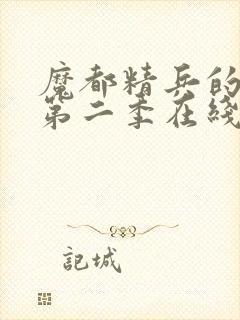 魔都精兵的
第二季在线
記城